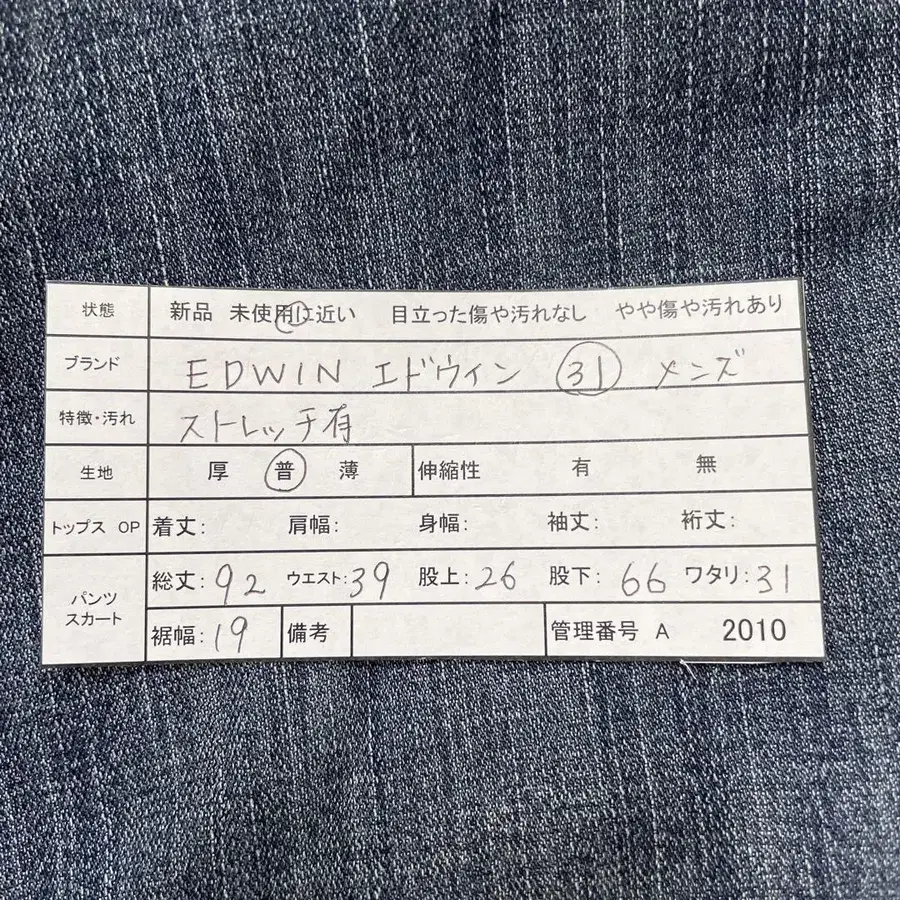 状態 新品 未使用に近い 目立った傷や汚れなし やや傷や汚れあり
ブランド EDWIN エドウィン 31 メンズ
特徴・汚れ ストレッチ有
生地 厚 普 薄 伸縮性 有 無
トップス OP 着丈: 肩幅: 身幅: 袖丈: 裄丈:
パンツ スカート 総丈: 92 ウエスト: 39 股上: 26 股下: 66 ワタリ: 31
裾幅: 19 備考 管理番号 A 2010